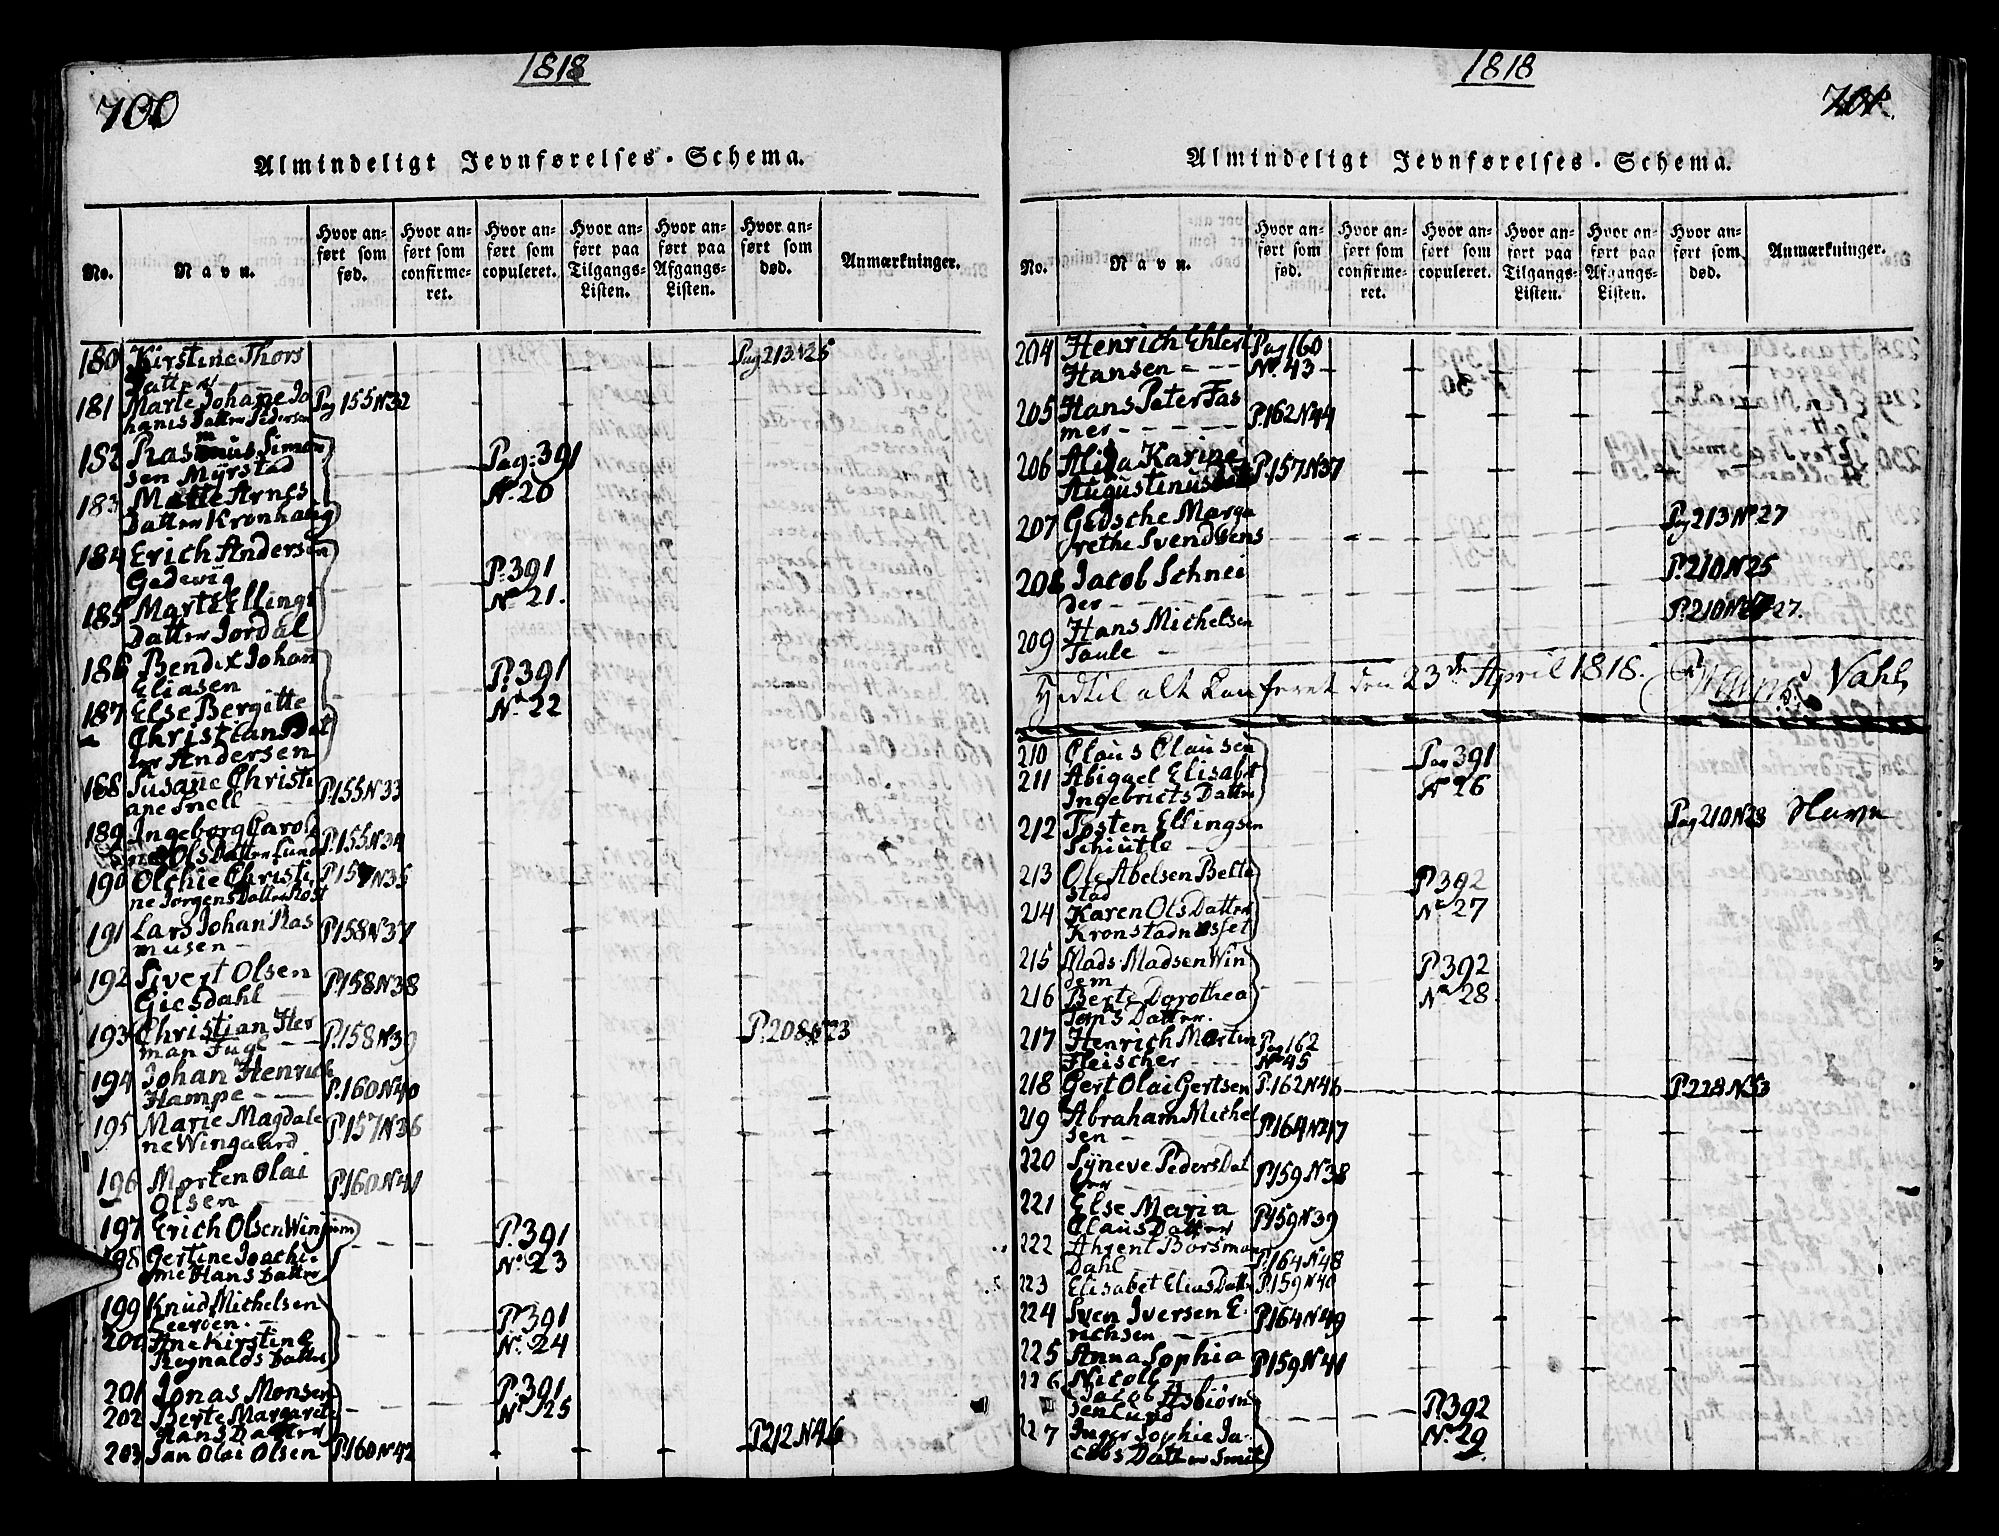 1818
700
Almindeligt Jevnførelses-Schema.
No.
Navn.
Hvor anført som fød.
Hvor anført som confirmeret.
Hvor anført som copuleret.
Hvor anført paa Tilgangs-Listen.
Hvor anført paa Afgangs-Listen.
Hvor anført som død.
Anmærkninger.
180 Kirstine Thors Pag 213 N 25
Datter
181 Marte Johañe Jo Pag 155 N 32
hanis Datter Pedersen
182 Rasmus Simon Pag: 391
sen Mÿrstad
183 Mette Arnes N. 20
Datter Kronhaug
184 Erich Andersen P. 391
Gadevig
185 Marte Ellings No 21.
Datter Jordal
186 Bendix Johan P. 391
Eliasen
187 Else Bergitte No 22
Christians Dat
ter Andersen
188 Susañe Christi P. 155 N 33
ane Snell
189 Ingeborg Carol P. 155 N 34
ne Ols Datter Lund
190 Olchie Christi P 157 N 35
ne Jørgens Datter Rost
191 Lars Johan Ras P. 158 N 37
musen
192 Sivert Olsen P. 158 N 38
Giesdahl
193 Christian Her P. 158 N 39 P. 208 N 23
man Fugl
194 Johan Henrich P. 160 N 40
Hampe
195 Marie Magdale P 157 N 36
ne Wingaard
196 Morten Olai P. 160 N 41
Olsen
197 Erich Olsen Winjum P. 391
198 Gertine Joachi No 23
me Hans Datter
199 Knud Michelsen P. 391
Leerøen.
200 Ane Kirstine No 24
Reynalds Datter
201 Jonas Monsen P. 391
202 Berte Margarete No 25
Hans Datter
203 Jan Olai Olsen P. 160 N 42 P. 212 N 46
1818
701
Almindeligt Jevnførelses-Schema.
No.
Navn.
Hvor anført som fød.
Hvor anført som confirmeret.
Hvor anført som copuleret.
Hvor anført paa Tilgangs-Listen.
Hvor anført paa Afgangs-Listen.
Hvor anført som død.
Anmærkninger.
204 Henrich Ehlert Pag 160
Hansen No. 43
205 Hans Peter Fas P. 162 N 44
mer
206 Alida Karine P. 157 N 37
Augustinus
207 Gedsche Marga Pag 213 No 27
rethe Svendsens
208 Jacob Schnei P. 210 N 25
der
209 Hans Michelsen P. 210 N 27.
Taule
Hidtil alt Confereret den 23de April 1818. Vahl
210 Claus Clausen Pag 391
211 Abigael Elisabt No 26
Ingebricts Datter
212 Tosten Ellingsen Pag 210 N 28
Schiutle
213 Ole Abelsen Belte P. 392
stad
214 Karen Ols Datter No 27
Kronstadnesset
215 Mads Madsen Win P. 392
dem
216 Berte Dorothea No 28.
Tøns Datter.
217 Henrich Martin Pag 162
Fleischer No 45
218 Gert Olai Gertsen P. 162 N 46 P. 228 N 53
219 Abraham Michel P. 164 N 47
sen
220 Sÿneve Peders Dat P. 159 N 38
ter
221 Else Maria P. 159 N 39
Claus Datter
222 Ahrent Borsman
Dahl P. 164 N 48
223 Elisabet Elias Datter P. 159 N 40
224 Sven Iversen E- P. 164 N 49
richsen
225 Anna Sophia P. 159 N 41
Nicoll
226 Jacob Asbiørn P. 392
sen Lund
227 Inger Sophie Ja- No. 29
cobs Datter Smit